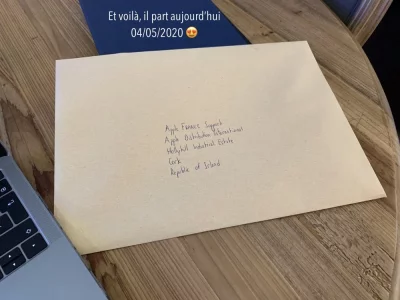 Et voilà, il part aujourd'hui
04/05/2020 😍
Apple France Support
Apple Distribution International
Hollyhill Industrial Estate
Cork
Republic of Ireland